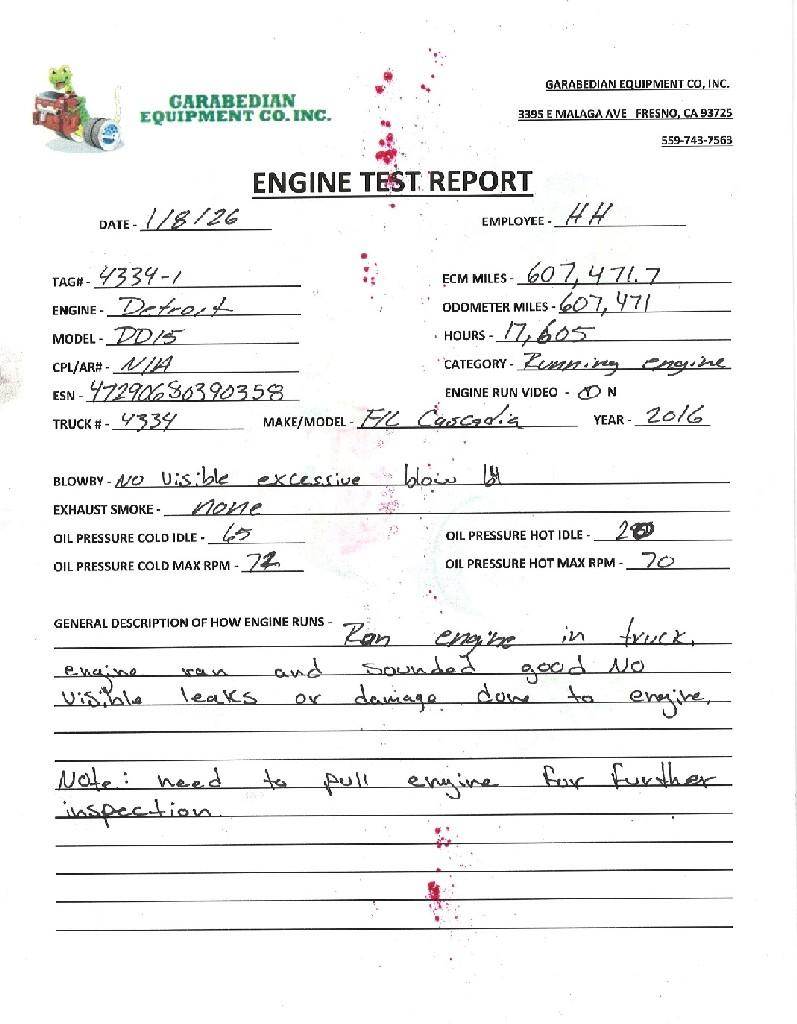 GARABEDIAN
EQUIPMENT CO. INC.
GARABEDIAN EQUIPMENT CO, INC.
3395 E MALAGA AVE FRESNO, CA 93725
559-743-7563
ENGINE TEST REPORT
DATE - 1/8/26 EMPLOYEE - HH
TAG# - 4334-1 ECM MILES - 607,471.7
ENGINE - Detroit ODDMETER MILES - 607,471
MODEL - DD15 HOURS - 17,605
CPL/AR# - N/A CATEGORY - Running engine
ESN - 472906S0390358 ENGINE RUN VIDEO - Y N
TRUCK # - 4334 MAKE/MODEL - F/L Cascadia YEAR - 2016
BLOWBY - No visible excessive blow by
EXHAUST SMOKE - none
OIL PRESSURE COLD IDLE - 65 OIL PRESSURE HOT IDLE -
OIL PRESSURE COLD MAX RPM - 72 OIL PRESSURE HOT MAX RPM - 70
GENERAL DESCRIPTION OF HOW ENGINE RUNS - Ran engine in truck.
engine ran and sounded good No
visible leaks or damage done to engine.
Note: need to pull engine for further
inspection.